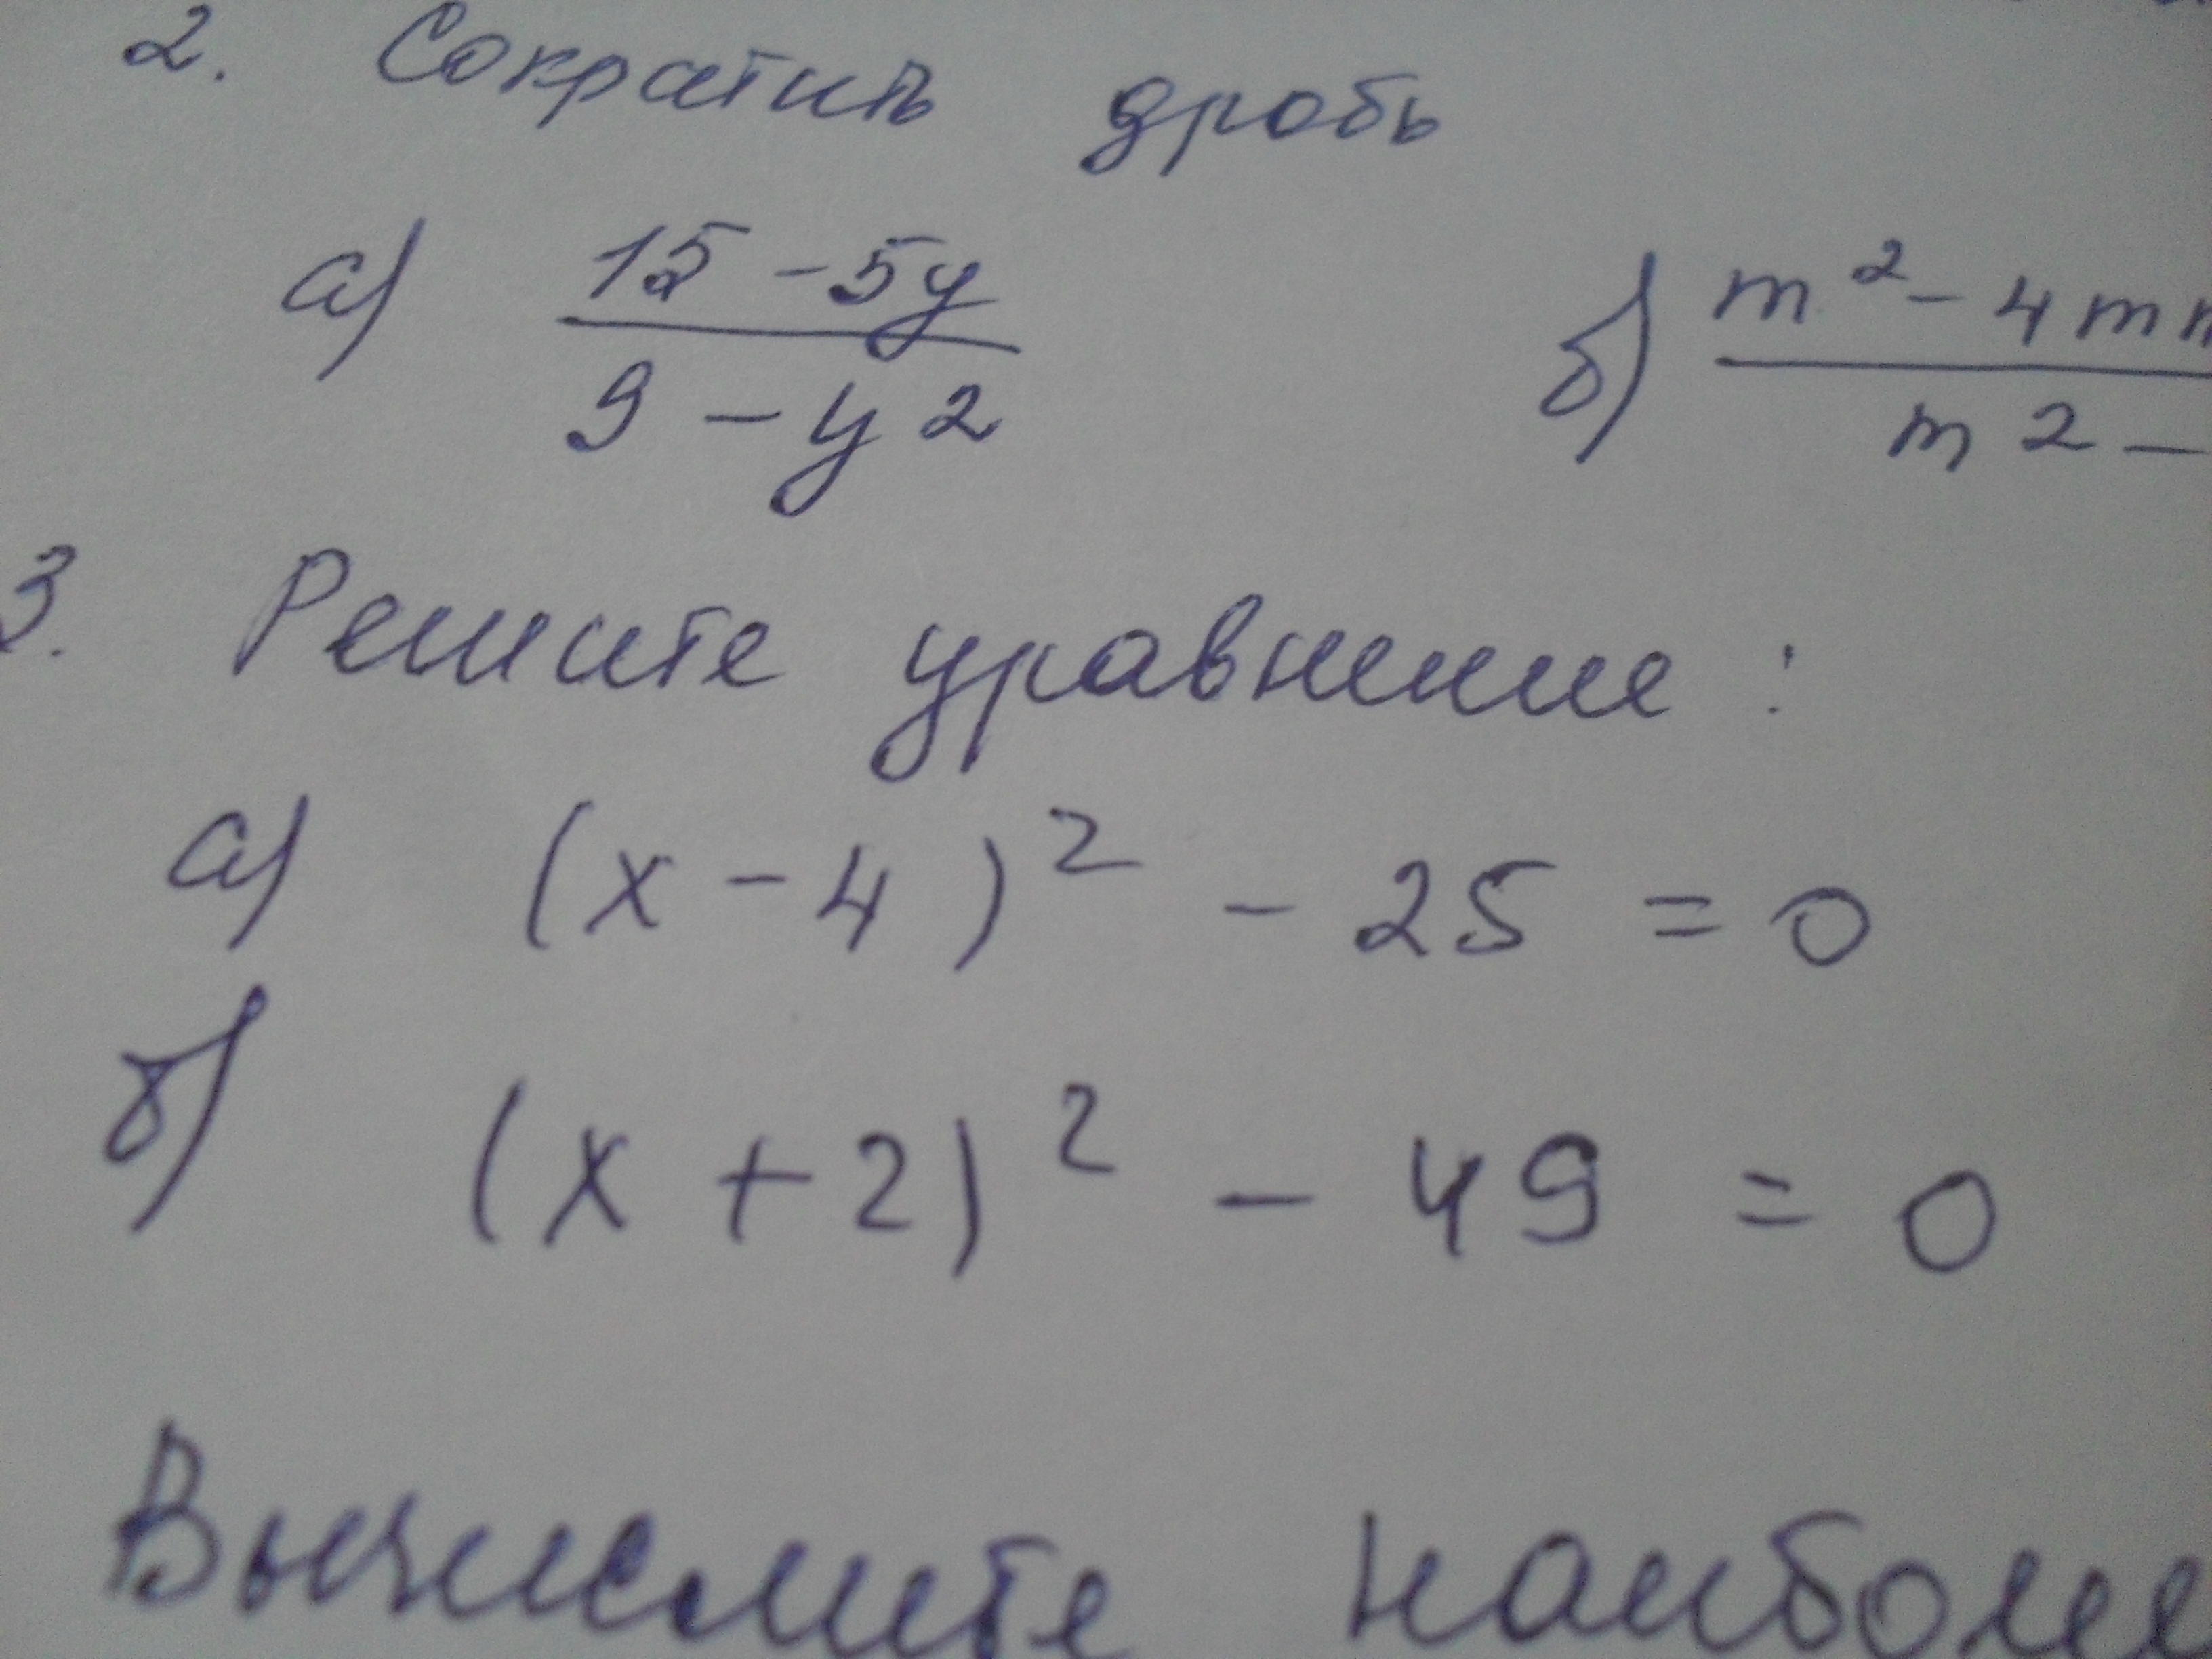 2. Сократить дробь
а) 15 - 5y / 9 - y 2 б) m² - 4 m / m 2 -
3. Решите уравнение :
а) (x - 4)² - 25 = 0
б) (x + 2)² - 49 = 0
Вычислите наиболе